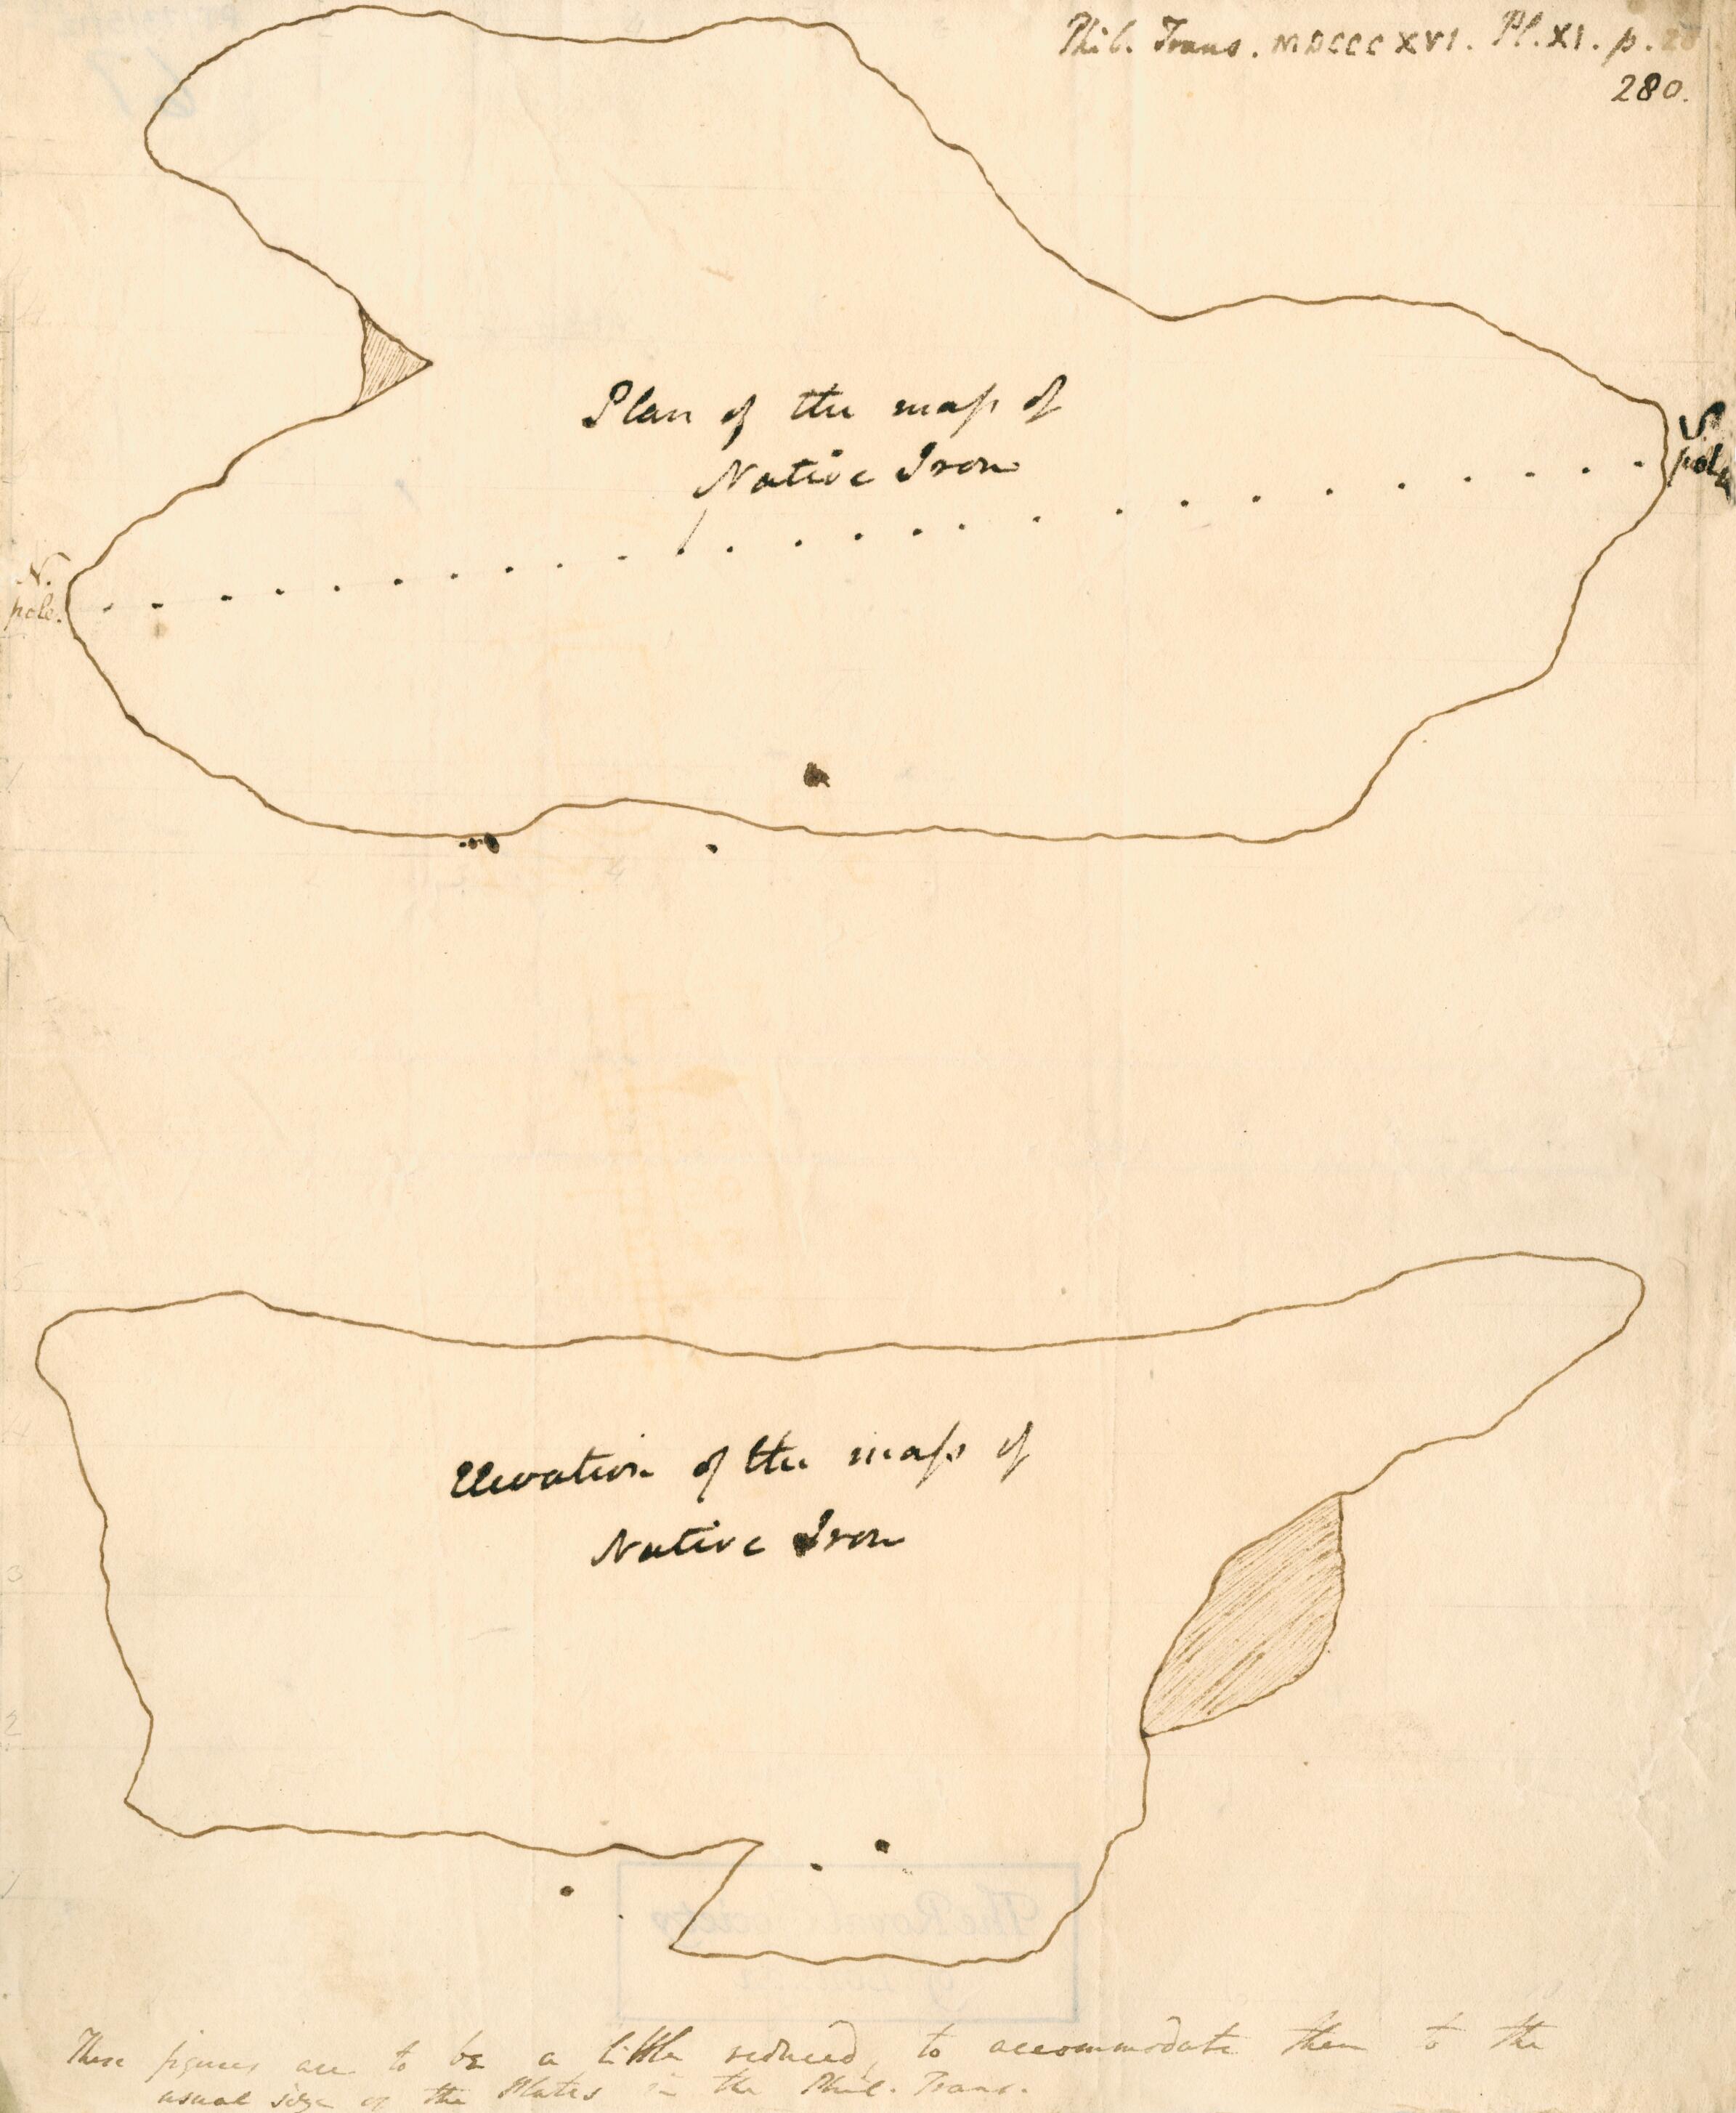 Phil. Trans. MDCCCXVI. Pl. XI. p.
280.
Plan of the maſs of
Native Iron
S
pole
N.
pole.
Elevation of the maſs of
Native Iron
5
3
2
1
The Royal Society
of London
These figures are to be a little reduced, to accommodate them to the
usual size of the Plates in the Phil. Trans.